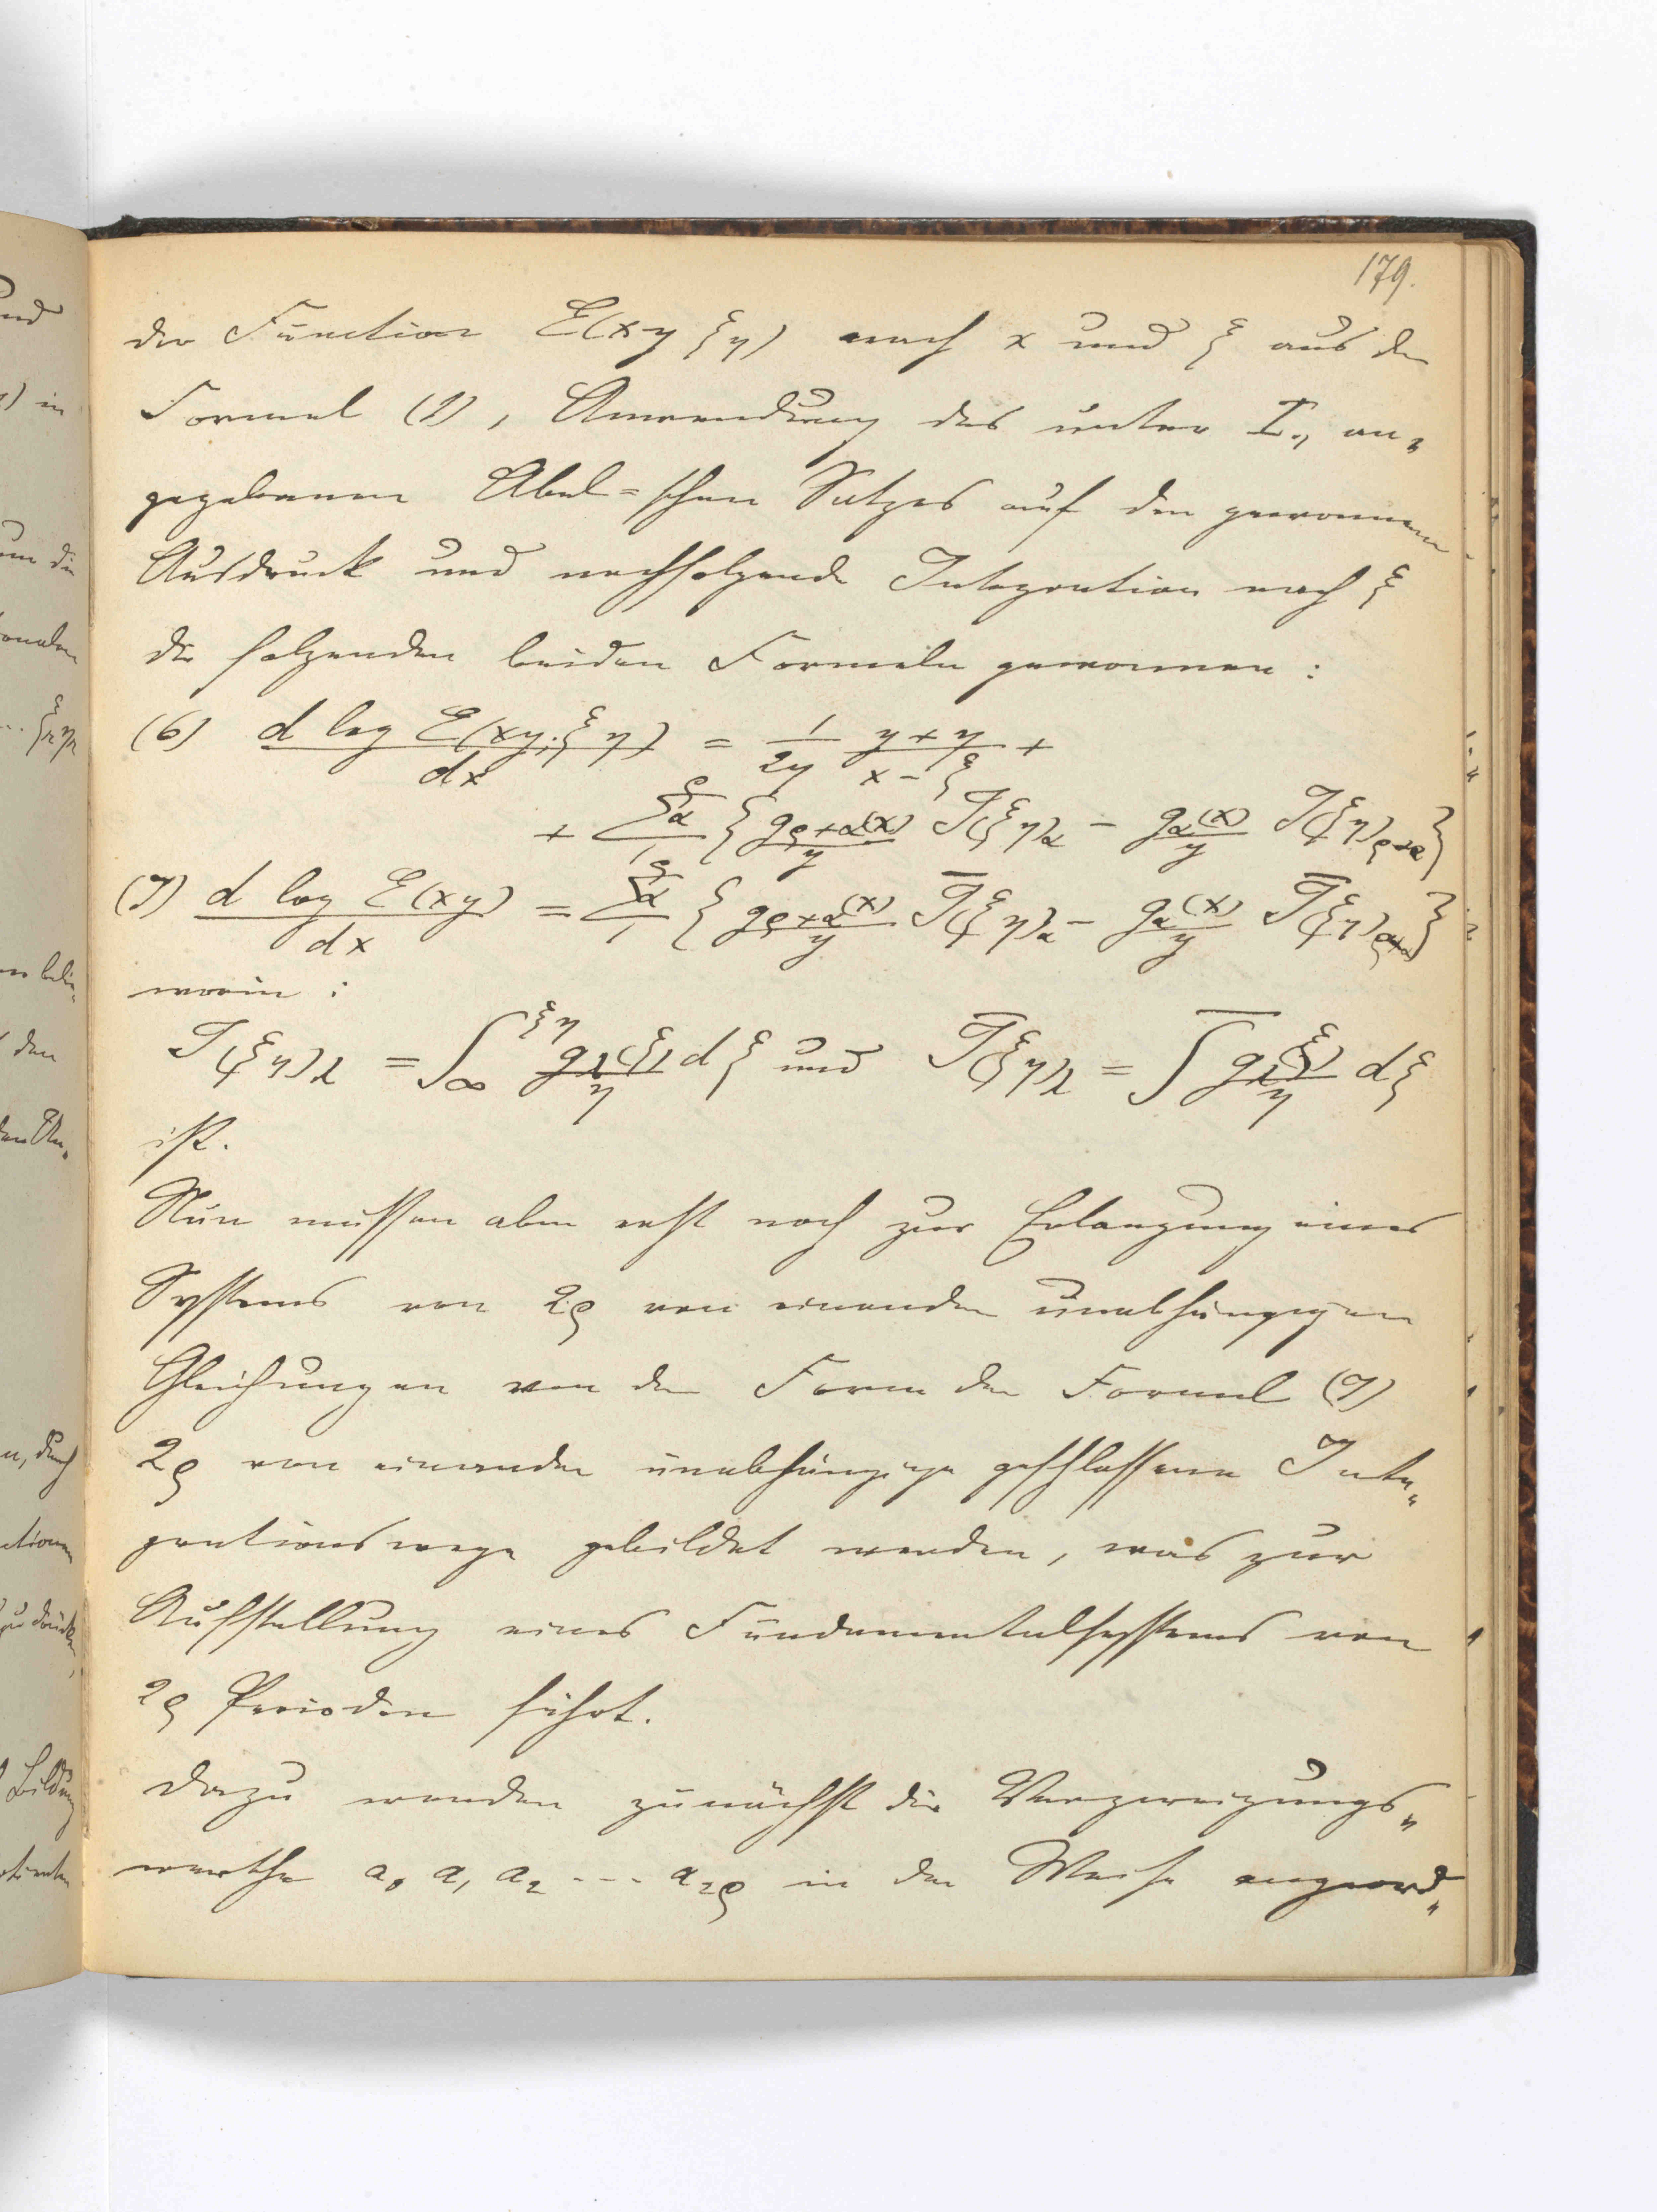 179.
der Function E(xy ξη) nach x und ξ aus der
Formel (1), Anwendung des unter I., an„
gegebenen Abel=schen Satzes auf den gewonnenen
Ausdruck und nachfolgende Integration nach ξ
die folgenden beiden Formeln gewonnen:
(6) d log E(xy; ξη)/dx = 1/2y (y+η)/(x-ξ) +
+ Σα_1^ρ { g_{ρ+α}(x)/y J(ξη)_α - g_α(x)/y J(ξη)_{ρ+α} }
(7) d log E(xy)/dx = Σα_1^ρ { g_{ρ+α}(x)/y J̅(ξη)_α - g_α(x)/y J̅(ξη)_{ρ+α} }
worin:
J(ξη)_λ = ∫_∞^{ξη} g_λ(ξ)/η dξ und J̅(ξη)_λ = ∫̅ g_λ(ξ)/η dξ
ist.
Nun müssen aber erst noch zur Erlangung eines
Systems von 2ρ von einander unabhängigen
Gleichungen von der Form der Formel (7)
2ρ von einander unabhängige geschlossene Inte„
grationswege gebildet werden, was zur
Aufstellung eines Fundamentalsystems von
2ρ Perioden führt.
Dazu werden zunächst die Verzweigungs„
werthe a₀ a₁ a₂ ... a_{2ρ} in der Weise angeord„